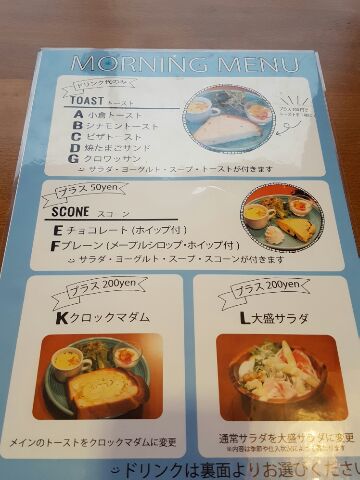 MORNING MENU
ドリンク代のみ
TOAST トースト
A 小倉トースト
B シナモントースト
C ピザトースト
D 焼たまごサンド
G クロワッサン
サラダ・ヨーグルト・スープ・トーストが付きます
プラス 50yen
SCONE スコーン
E チョコレート (ホイップ付)
F プレーン (メープルシロップ・ホイップ付)
サラダ・ヨーグルト・スープ・スコーンが付きます
プラス 200yen
K クロックマダム
メインのトーストをクロックマダムに変更
プラス 200yen
L 大盛サラダ
通常サラダを大盛サラダに変更
※内容は季節や仕入状況によって異なります
ドリンクは裏面よりお選びください